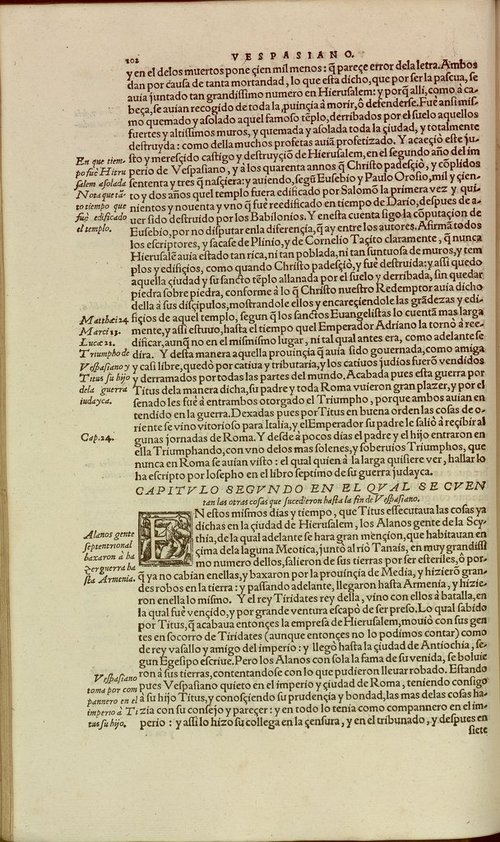 202
VESPASIANO.
y en el delos muertos pone çien mil menos: q̃ pareçe error dela letra. Ambos
dan por causa de tanta mortandad, lo que esta dicho, que por ser la pascua, se
auia juntado tan grandissimo numero en Hierusalem: y porq̃ alli, como à ca-
beça, se auian recogido de toda la ꝓuinçia à morir, ô defenderse. Fuè ansi mis-
mo quemado y asolado aquel famoso tẽplo, derribados por el suelo aquellos
fuertes y altissimos muros, y quemada y asolada toda la çiudad, y totalmente
destruyda: como della muchos profetas auia profetizado. Y acaeçio este ju-
sto y meresçido castigo y destruyçiõ de Hierusalem, en el segundo año del im
perio de Vespasiano, y à los quarenta annos q̃ Christo padesçiò, y cõplidos
sententa y tres q̃ nasçiera: y auiendo, segũ Eusebio y Paulo Orosio, mil y çien-
to y dos años quel templo fuera edificado por Salomõ la primera vez y qui-
nientos y nouenta y vno q̃ fuè reedificado en tiempo de Dario, despues de a-
uer sido destruido por los Babilonios. Y enesta cuenta sigo la cõputaçion de
Eusebio, por no disputar enla diferençia, q̃ ay entre los autores. Afirmã todos
los escriptores, y sacase de Plinio, y de Cornelio Taçito claramente, q̃ nunca
Hierusalẽ auia estado tan rica, ni tan poblada, ni tan suntuosa de muros, y tem
plos y edifiçios, como quando Christo padesçiò, y fuè destruida: y assi quedo
aquella çiudad y su sancto tẽplo allanada por el suelo y derribada, sin quedar
piedra sobre piedra, conforme à lo q̃ Christo nuestro Redemptor auia dicho
della à sus disçipulos, mostrandole ellos y encareçiendole las grãdezas y edi-
fiçios de aquel templo, segun q̃ los sanctos Euangelistas lo cuentã mas larga
mente, y assi estuuo, hasta el tiempo quel Emperador Adriano la tornò à ree-
dificar, aunq̃ no en el mismissimo lugar, ni tal qual antes era, como adelante se
dira. Y desta manera aquella prouinçia q̃ auia sido gouernada, como amiga
y casi libre, quedò por catiua y tributaria, y los catiuos judios fuerõ vendidos
y derramados por todas las partes del mundo. Acabada pues esta guerra por
Titus dela manera dicha, su padre y toda Roma vuieron gran plazer, y por el
senado les fuè à entrambos otorgado el Triumpho, porque ambos auian en-
tendido en la guerra. Dexadas pues por Titus en buena orden las cosas de o-
riente se vino vitorioso para Italia, y el Emperador su padre le saliò à reçibir al
gunas jornadas de Roma. Y desde à pocos dias el padre y el hijo entraron en
ella Triumphando, con vno delos mas solenes, y soberuios Triumphos, que
nunca en Roma se auian visto: el qual quien à la larga quisiere ver, hallar lo
ha escripto por Iosepho en el libro septimo de su guerra judayca.
En que tiem
po fuè Hieru
salem asolada
Nota que tã-
to tiempo que
fuè edificado
el templo.
Matthæi 24
Marci 13.
Lucæ 21.
Triumpho de
Vespasiano y
Titus su hijo
dela guerra
iudayca.
Cap. 24.
CAPITVLO SEGVNDO EN EL QVAL SE CVEN
tan las otras cosas que sucedieron hasta la fin de Vespasiano.
EN estos mismos dias y tiempo, que Titus essecutaua las cosas ya
dichas en la çiudad de Hierusalem, los Alanos gente de la Scy-
thia, de la qual adelante se hara gran mençion, que habitauan en
çima dela laguna Meotica, juntò al riò Tanais, en muy grandissi
mo numero dellos, salieron de sus tierras por ser esteriles, ò por-
q̃ ya no cabian enellas, y baxaron por la prouinçia de Media, y hizierõ gran-
des robos en la tierra: y passando adelante, llegaron hasta Armenia, y hizie-
ron enella lo mismo. Y el rey Tiridates rey della, vino con ellos à batalla, en
la qual fuè vençido, y por grande ventura escapò de ser preso. Lo qual sabido
por Titus, q̃ acabaua entonçes la empresa de Hierusalem, mouiò con sus gen
tes en socorro de Tiridates (aunque entonçes no lo podimos contar) como
de rey vasallo y amigo del imperio: y llegò hasta la çiudad de Antiochia, se-
gun Egesipo escriue. Pero los Alanos con sola la fama de su venida, se boluie
ron à sus tierras, contentandose con lo que pudieron lleuar robado. Estando
pues Vespasiano quieto en el imperio y çiudad de Roma, teniendo consigo
à su hijo Titus, y conosçiendo su prudençia y bondad, las mas delas cosas ha-
zia con su consejo y pareçer: y en todo lo tenia como compannero en el im-
perio: y assi lo hizo su collega en la çensura, y en el tribunado, y despues en
siete
Alanos gente
septentrional
baxaron à ha
zer guerra ha
sta Armenia.
Vespasiano
toma por com
pannero en el
imperio à Ti
tus su hijo.